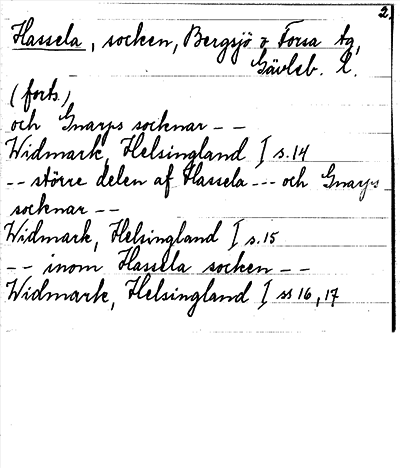 2.
Hassela, socken, Bergsjö o Forsa tg,
Gävleb. L.
(forts.)
och Gnarps socknar - -
Widmark, Helsingland I s. 14
- - större delen af Hassela - - - och Gnarps
socknar - -
Widmark, Helsingland I s. 15
- - inom Hassela socken - -
Widmark, Helsingland I ss 16, 17